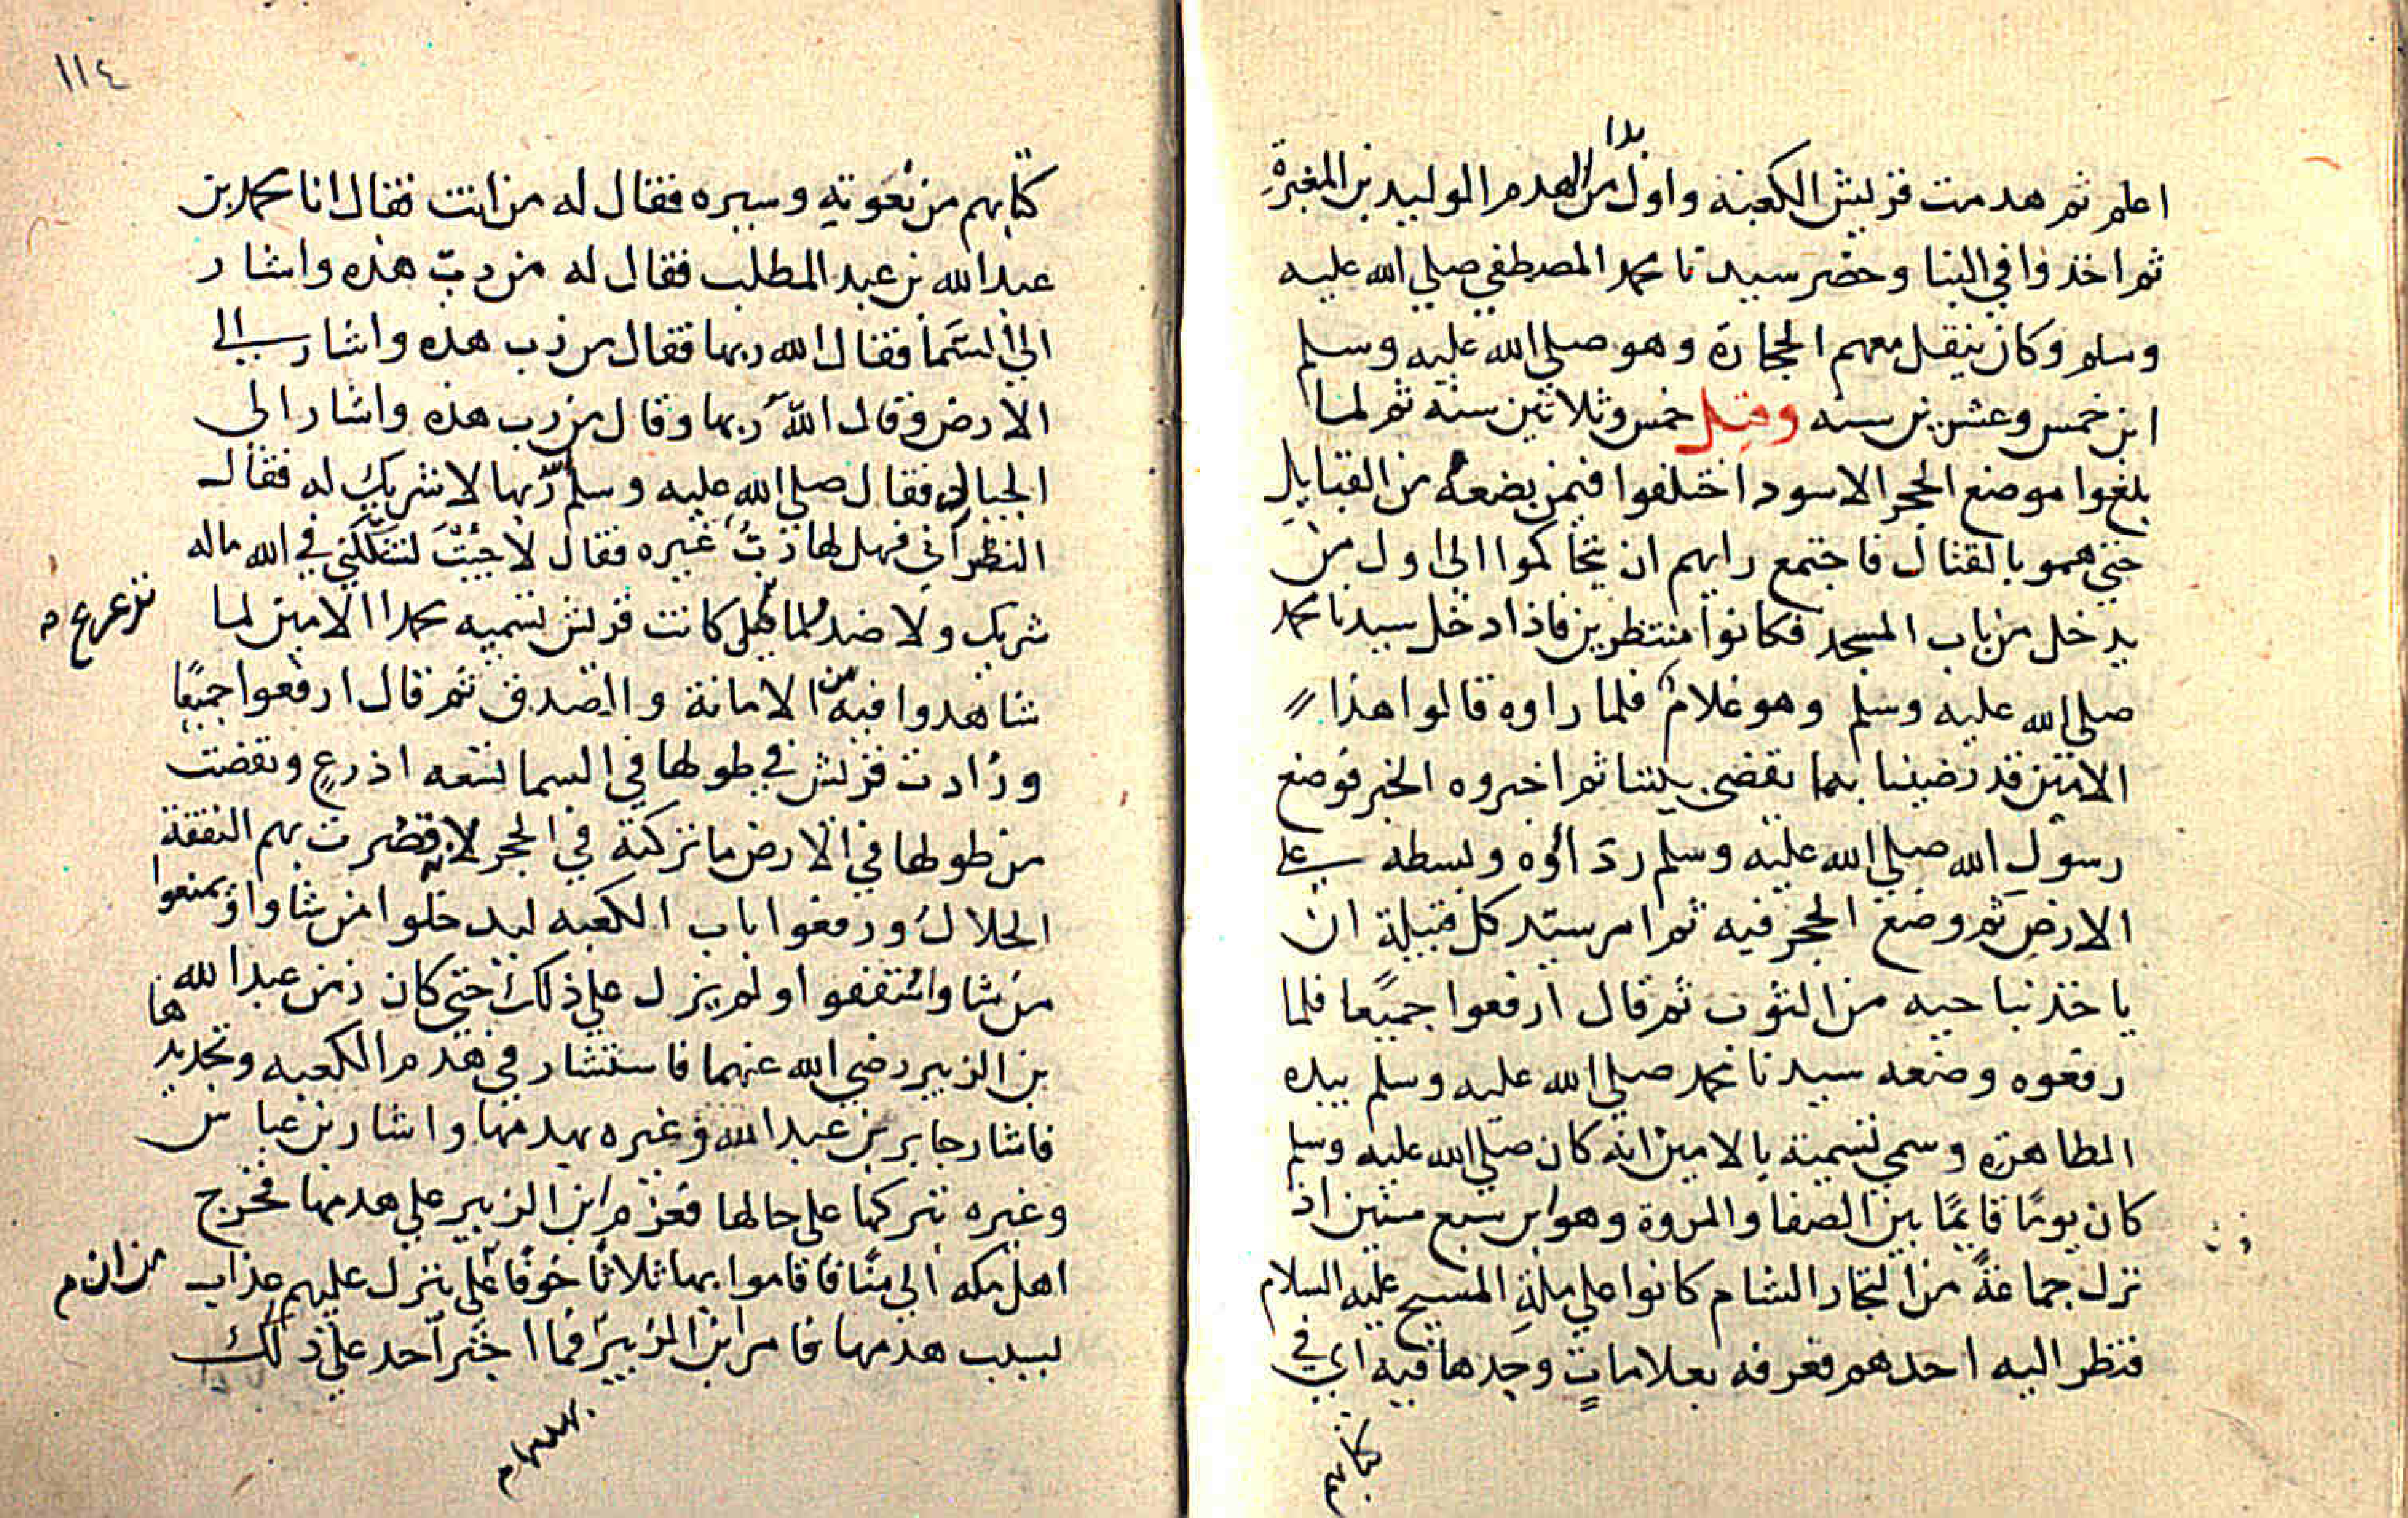 اعلم ثم هدمت قريش الكعبة واول من بدا الهدم الوليد بن المغيرة
ثم اخذوا في البنا وحضر سيدنا محمد المصطفي صلي الله عليه
وسلم وكان ينقل معهم الحجارة وهو صلي الله عليه وسلم
ابن خمس وعشرين سنه وقيل خمس وثلاثين سنة ثم لما
بلغوا موضع الحجر الاسود اختلفوا فيمن يضعه من القبايل
حتي همو بالقتال فاجتمع رايهم ان يتحاكموا الي اول من
يدخل من باب المسجد فكانوا منتظرين فاذا دخل سيدنا محمد
صلي الله عليه وسلم وهو غلام فلما راوه قالوا هذا
الامين قد رضينا بما يقضي بيننا ثم اخبروه الخبر فوضع
رسول الله صلي الله عليه وسلم رداؤه وبسطه علي
الارض ثم وضع الحجر فيه ثم امر سيد كل قبيلة ان
ياخذ بناحيه من الثوب ثم قال ارفعوا جميعا فلما
رفعوه وضعه سيدنا محمد صلي الله عليه وسلم بيده
الطاهرة وسمي تسمية بالامين انه كان صلي الله عليه وسلم
كان يومًا قايمًا بين الصفا والمروة وهو ابن سبع سنين اذ
نزل جماعةً من التجار الشام كانوا علي ملة المسيح عليه السلام
فنظر اليه احدهم فعرفه بعلاماتٍ وجدها فيه اي في
كتابهم
١١٤
كتابهم من نعوته وسيره فقال له من انت فقال انا محمد بن
عبد الله بن عبد المطلب فقال له من ربّ هذه واشار
الي السما فقال الله ربها فقال من رب هذه واشار الي
الارض وقال الله ربها وقال من رب هذه واشار الي
الجبال فقال صلي الله عليه وسلم الله ربها لا شريك له فقال
النظراني فهل لها ربُّ غيره فقال لا جيت لتشككني في الله ماله
شريك ولا ضد كانت قريش تسميه محمدا الامين لما
ترعرع
شاهدوا فيه من الامانة والصدق ثم قال ارفعوا جميعًا
وزادت قريش في طولها في السما تسعه اذرعٍ ونقضت
من طولها في الارض ما تركته في الحجر لانه قصرت بهم النفقة
الحلال ورفعوا باب الكعبه ليدخلوا من شاوا ويمنعوا
من شاوا وسقفوا ولم يزل علي ذلك حتي كان زمن عبد الله
بن الزبير رضي الله عنهما فاستشار في هدم الكعبه وتجديدها
فاشار جابر بن عبد الله وغيره بهدمها واشار بن عباس
وغيره بتركها علي حالها فعزم ابن الزبير علي هدمها فخرج
اهل مكه الي منًا فاقاموا بها ثلاثًا خوفًا ينزل عليهم عذاب
من ان
لسبب هدمها فامر ابن الزبير فما اجتر احد علي ذلك